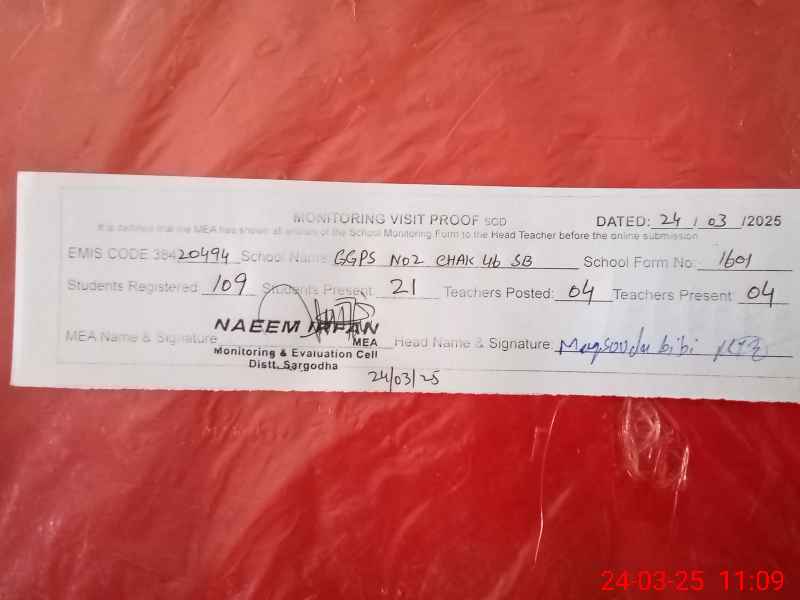 MONITORING VISIT PROOF SCD DATED: 24 / 03 /2025
It is certified that the MEA has shown all entries of the School Monitoring Form to the Head Teacher before the online submission
EMIS CODE 38420494 School Name: GGPS NO2 CHAK 46 SB School Form No: 1601
Students Registered: 109 Students Present: 21 Teachers Posted: 04 Teachers Present: 04
NAEEM IRFAN
MEA Name & Signature MEA Head Name & Signature: Maqsouda bibi
Monitoring & Evaluation Cell
Distt. Sargodha
24/03/25
24-03-25 11:09